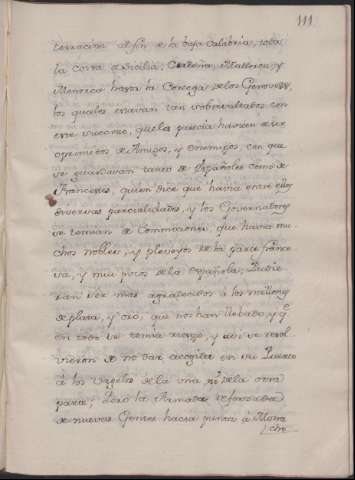 111
terracion al fin de la baja Calabria, toda
la costa de Sicilia, Cerdeña, Mallorca, y
Menorca hasta la de los Genoveses,
los quales estaban tan sobresaltados con
este suceso, que la puerta havian de ser
oprimidos de Amigos, y enemigos, con que
se guardavan tanto de Españoles como de
Franceses, quien dice que havia entre ellos
diversas parcialidades, y los Governadores
se temian de Comociones, que havia mu-
chos nobles, y pleveyos de la parte france
sa, y mui pocos de la española; Pudie
ran ser mas agradecidos á los millones
de plata, y oro, que nos han llevado, y q.
en todo se temia riesgo, y assi se resol
vieron de no dar acogida en su Puerto
á los Vageles de la una ni de la otra
parte; Pero la Armada reforzada
de nuevas Gentes hacia punta á Mona